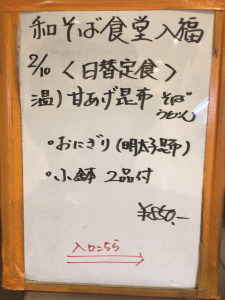 和そば食堂入福
2/10 <日替定食>
温) 甘あげ昆布 そば
うどん
・おにぎり(明太子昆布)
・小鉢 2品付
¥850.-
入口こちら